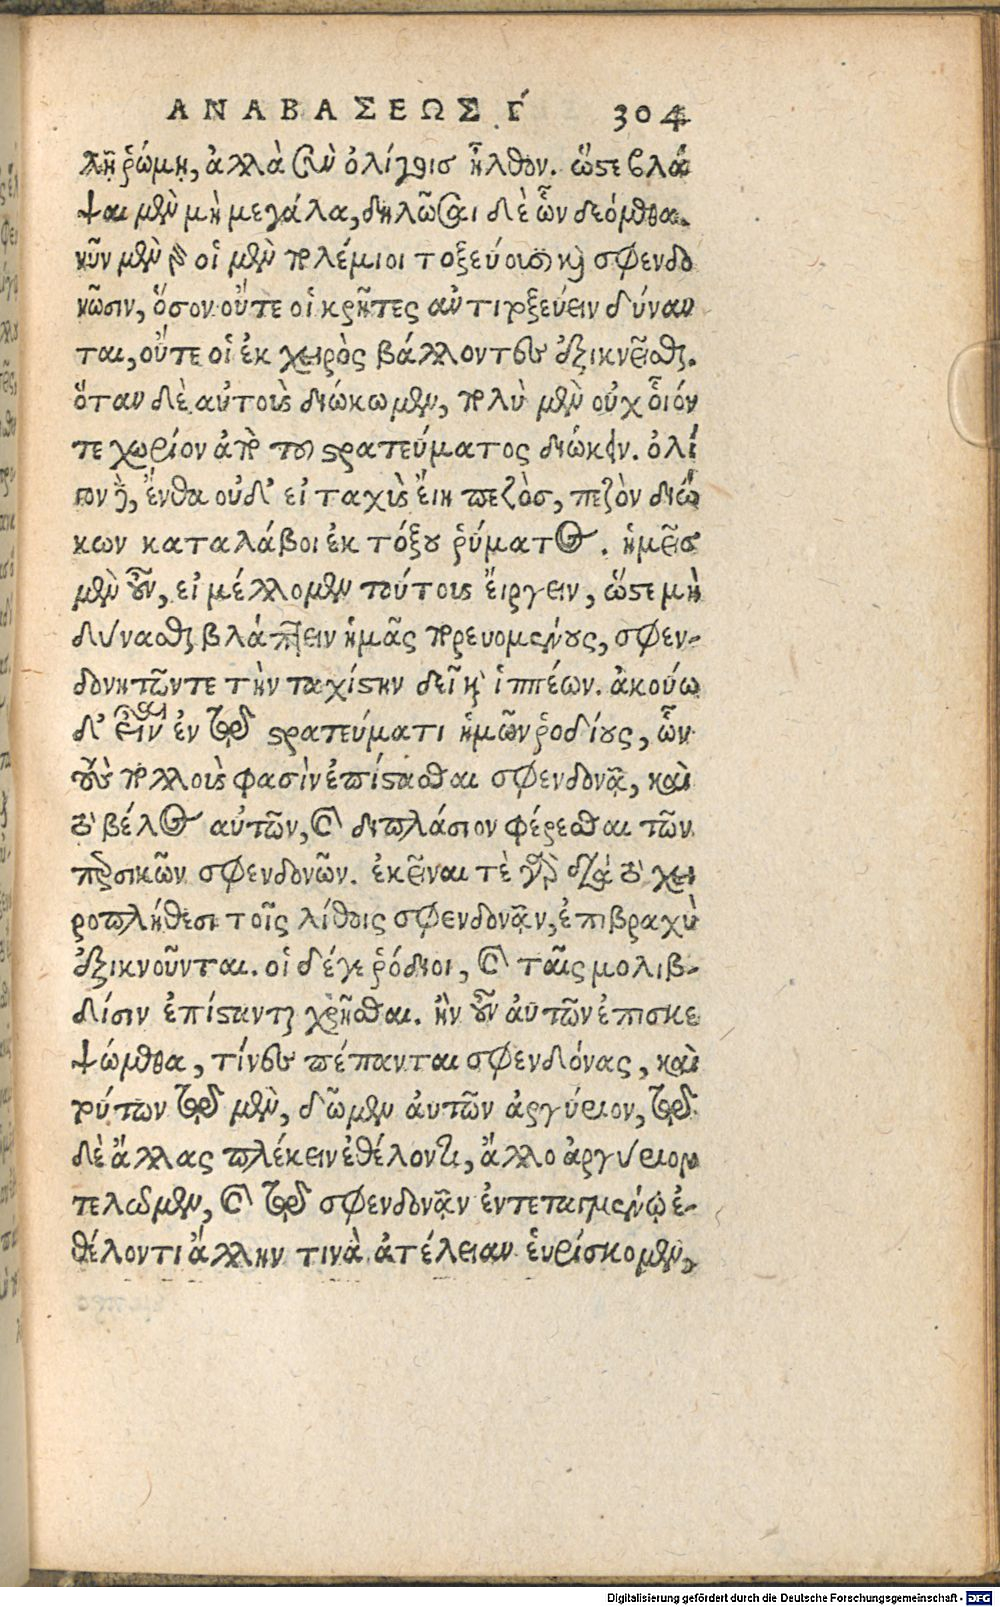 ΑΝΑΒΑΣΕΩΣ Γ 304
λῇ ῥώμῃ, ἀλλὰ σὺν ὀλίγοις ἦλθον. ὥστε βλά
ψαι μὲν μὴ μεγάλα, δηλῶσαι δὲ ὧν δεόμεθα.
νῦν μὲν γὰρ οἱ μὲν πολέμιοι τοξεύουσι καὶ σφενδο
νῶσιν, ὅσον οὔτε οἱ κρῆτες ἀντιτοξεύειν δύναν
ται, οὔτε οἱ ἐκ χειρὸς βάλλοντες ἐξικνεῖσθαι.
ὅταν δὲ αὐτοὺς διώκωμεν, πολὺ μὲν οὐχ οἷόν
τε χωρίον ἀπὸ τοῦ στρατεύματος διώκειν. ὀλί
γον δὲ, ἔνθα οὐδ' εἰ ταχὺς εἴη πεζὸς, πεζὸν διώ
κων καταλάβοι ἐκ τόξου ῥύματος. ἡμεῖς
μὲν οὖν, εἰ μέλλομεν τούτους εἴργειν, ὥστε μὴ
δύνασθαι βλάπτειν ἡμᾶς πορευομένους, σφεν-
δονητῶν τε τὴν ταχίστην δεῖ καὶ ἱππέων. ἀκούω
δ' εἶναι ἐν τῷ στρατεύματι ἡμῶν ῥοδίους, ὧν
τοὺς πολλούς φασὶν ἐπίστασθαι σφενδονᾶν, καὶ
τὸ βέλος αὐτῶν, καὶ διπλάσιον φέρεσθαι τῶν
περσικῶν σφενδονῶν. ἐκεῖναι τὲ γὰρ διὰ τὸ χει
ροπλήθεσι τοῖς λίθοις σφενδονᾶν, ἐπιβραχὺ
ἐξικνοῦνται. οἱ δέ γε ῥόδιοι, καὶ ταῖς μολιβ-
δίσιν ἐπίστανται χρῆσθαι. ἢν οὖν αὐτῶν ἐπισκε
ψώμεθα, τίνες πέπανται σφενδόνας, καὶ
τούτων τῷ μὲν, δῶμεν αὐτῶν ἀργύριον, τῷ
δὲ ἄλλας πλέκειν ἐθέλοντι, ἄλλο ἀργύριον
τελῶμεν, καὶ τῷ σφενδονᾶν ἐντεταγμένῳ ἐ-
θέλοντι ἄλλην τινὰ ἀτέλειαν εὑρίσκομεν,
Digitalisierung gefördert durch die Deutsche Forschungsgemeinschaft - DFG